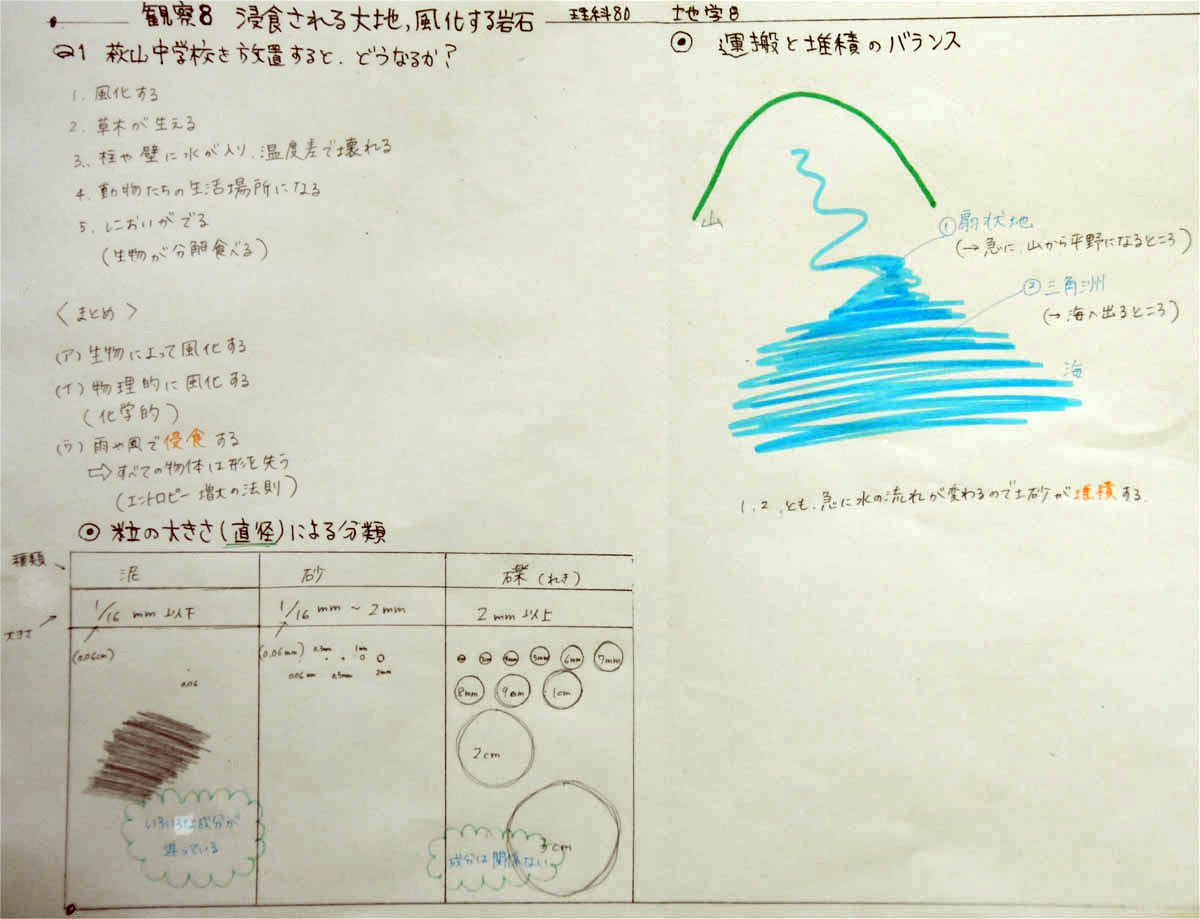 観察8 浸食される大地,風化する岩石
理科80 地学8
Q1 萩山中学校を放置すると、どうなるか?
1. 風化する
2. 草木が生える
3. 柱や壁に水が入り、温度差で壊れる
4. 動物たちの生活場所になる
5. においがでる
(生物が分解食べる)
〈まとめ〉
(ア) 生物によって風化する
(イ) 物理的に風化する
(化学的)
(ウ) 雨や風で侵食する
⇨すべての物体は形を失う
(エントロピー増大の法則)
◉ 粒の大きさ(直径)による分類
種類
泥 砂 礫(れき)
大きさ
1/16 mm 以下 1/16 mm ~ 2mm 2mm 以上
(0.06cm) (0.06mm) 0.3mm 1mm
0.06 0.06mm 0.5mm 2mm
3mm 4mm 5mm 6mm 7mm
8mm 9mm 1cm
2cm
3cm
いろいろな成分が
混っている
成分は関係ない
◉ 運搬と堆積のバランス
山
①扇状地
(→急に、山から平野になるところ)
②三角洲
(→海へ出るところ)
海
1、2、とも、急に水の流れが変わるので土砂が堆積する.